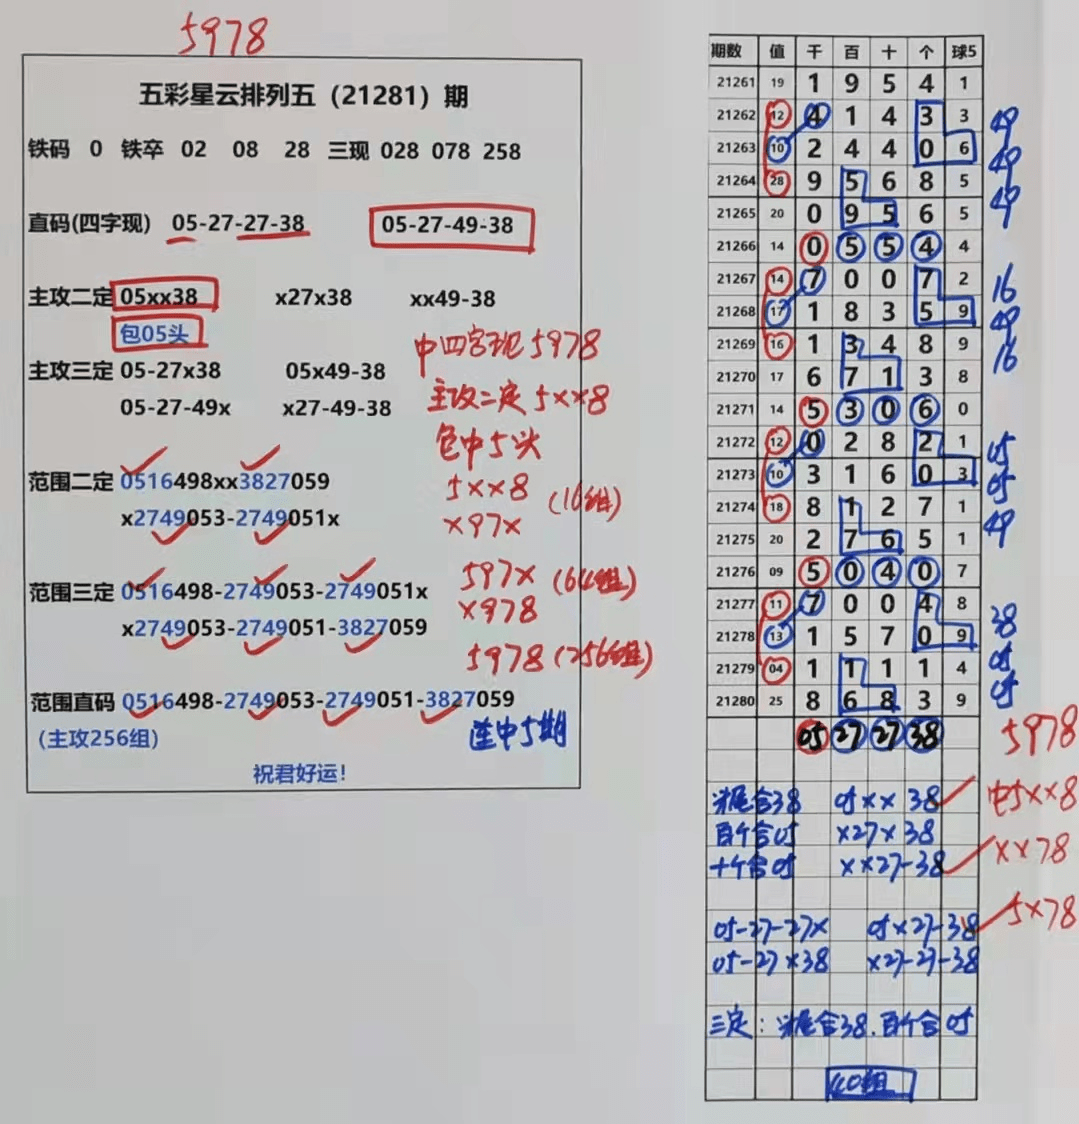 5978
五彩星云排列五（21281）期
铁码 0 铁卒 02 08 28 三现 028 078 258
直码(四字现) 05-27-27-38 05-27-49-38
主攻二定 05xx38 x27x38 xx49-38
包05头
中四字现5978
主攻三定 05-27x38 05x49-38
主攻二定5××8
05-27-49x x27-49-38
包中5头
范围二定 0516498xx3827059
5××8 (16组)
x2749053-2749051x
×97×
范围三定 0516498-2749053-2749051x
597× (64组)
×978
x2749053-2749051-3827059
5978 (256组)
范围直码 0516498-2749053-2749051-3827059
(主攻256组)
连中5期
祝君好运!
期数 值 千 百 十 个 球5
21261 19 1 9 5 4 1
21262 12 4 1 4 3 3 49
21263 10 2 4 4 0 6 49
21264 28 9 5 6 8 5 49
21265 20 0 9 5 6 5
21266 14 0 5 5 4 4
21267 14 7 0 0 7 2 16
21268 17 1 8 3 5 9 49
21269 16 1 3 4 8 9 16
21270 17 6 7 1 3 8
21271 14 5 3 0 6 0
21272 12 0 2 8 2 1 05
21273 10 3 1 6 0 3 05
21274 18 8 1 2 7 1 49
21275 20 2 7 6 5 1
21276 09 5 0 4 0 7
21277 11 7 0 0 4 8 38
21278 13 1 5 7 0 9 05
21279 04 1 1 1 1 4 05
21280 25 8 6 8 3 9
05 27 27 38 5978
尾合38 05×× 38 中5××8
百个合05 ×27×38
十个合05 ××27-38 ××78
05-27-27× 05×27-38 5×78
05-27×38 ×27-27-38
三定: 尾合38.百个合05
40组